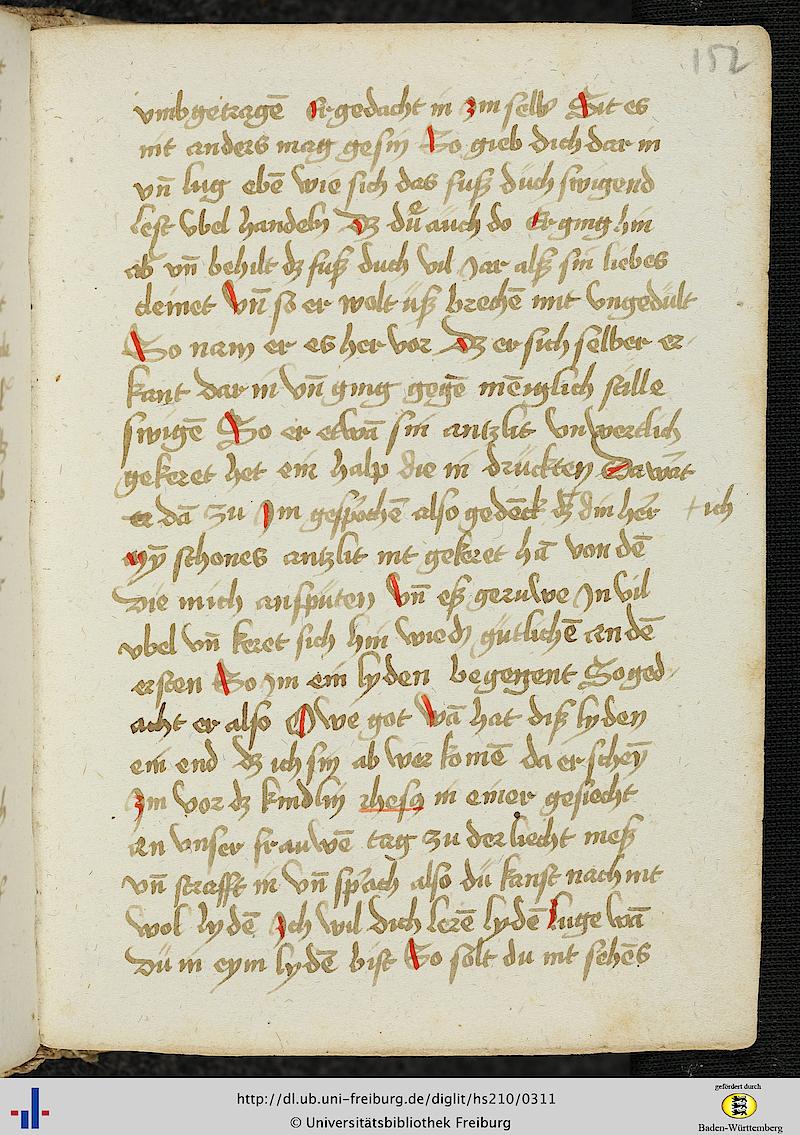 152
vmbgetragē Er gedacht in im selb Sit es
nit anders mag gesin So gieb dich dar in
vn̄ lug ebē wie sich das fusz důch swigend
lest vbel handeln dz du̇ auch do Er ging hin
ab vn̄ behilt dz fusz duch vil Jar alsz sin liebes
cleinet Vn̄ so er wolt üsz brechē mit vngedült
So nam er es her vor dz er sich selber er-
kant dar in vn̄ ging gegē mēiglich stille
swigē So er etwā sin antzlit vnwertlich
gekeret het ein halp die in drückten Da wart
er dā zu Jm gesprochē also gedēck dz din her + ich
my schones antzlit nit gekeret hā von dē
die mich anspüten Vn̄ esz geruwe Jn vil
vbel vn̄ keret sich hin wied gütlichē an dē
ersten So Jm ein lyden begegent So ged-
acht er also Owe got wā hat disz lyden
ein end dz ich sin ab wer komē da er schen
Jm vor dz kindlin rhesq in einer gesiecht
an vnser frauwē tag zu der liecht mesz
vn̄ strafft in vn̄ sprach also dü kanst nach nit
wol lydē Jch wil dich lerē lydē luge wā
Dü in eym lydē bist So solt du nit sehēs
http://dl.ub.uni-freiburg.de/diglit/hs210/0311
© Universitätsbibliothek Freiburg
gefördert durch
Baden-Württemberg